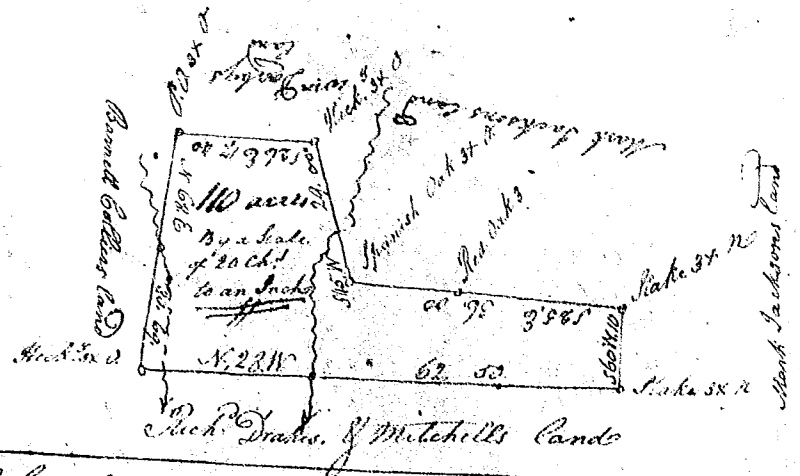 P.O 3x O
Irwin Darbys
land
Hick.y 3x O
Mark Jacksons land
Barnett Collins land
S26 E 17. 20
N 62 E
35. 69
20. 00
S 15 W
110 acres
By a Scale
of 20 Chs
to an Inch
Spanish Oak 3x
Red Oak 3
36. 00
S25.E
Stake 3x N
S60W.10
Mark Jacksons land
Hick.y 3x O
N.28W
62. 53
Stake 3x N
Rich.d Drakes, & Mitchells land